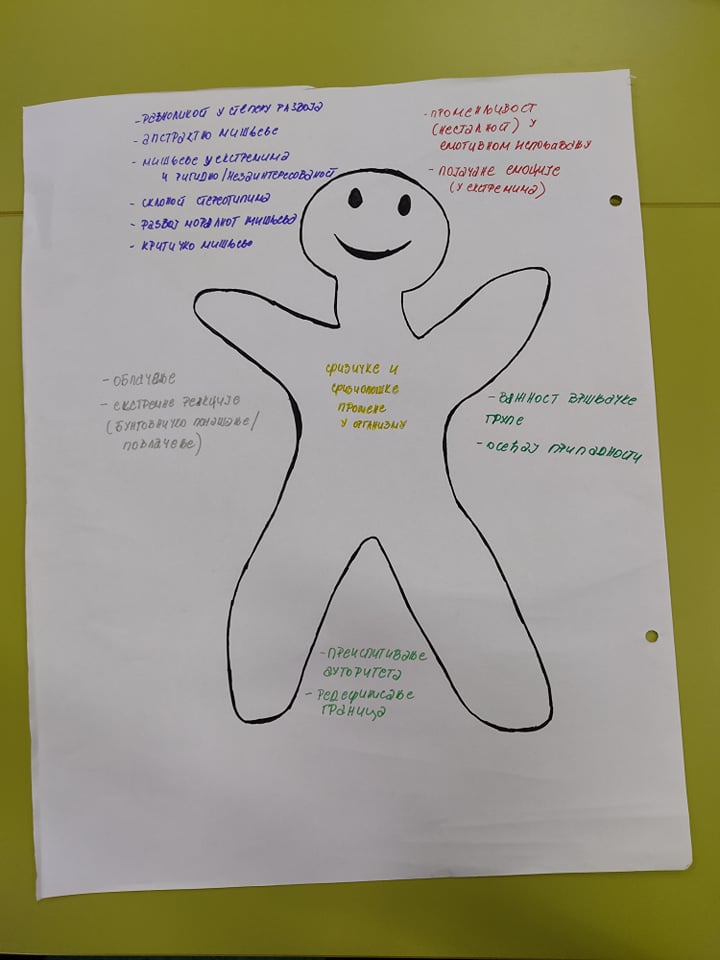 - РАЗНОЛИКОСТ У СТЕПЕНУ РАЗВОЈА
- АПСТРАКТНО МИШЉЕЊЕ
- МИШЉЕЊЕ У ЕКСТРЕМИМА
И РИГИДНО/НЕЗАИНТЕРЕСОВАНОСТ
- СКЛОНОСТ СТЕРЕОТИПИМА
- РАЗВОЈ МОРАЛНОГ МИШЉЕЊА
- КРИТИЧКО МИШЉЕЊЕ
- ПРОМЕНЉИВОСТ
(НЕСТАЛНОСТ) У
ЕМОТИВНОМ ИСПОЉАВАЊУ
- ПОЈАЧАНЕ ЕМОЦИЈЕ
(У ЕКСТРЕМИМА)
- ОБЛАЧЕЊЕ
- ЕКСТРЕМНЕ РЕАКЦИЈЕ
(БУНТОВНИЧКО ПОНАШАЊЕ/
ПОВЛАЧЕЊЕ)
ФИЗИЧКЕ И
ФИЗИОЛОШКЕ
ПРОМЕНЕ
У ОРГАНИЗМУ
- ВАЖНОСТ ВРШЊАЧКЕ
ГРУПЕ
- ОСЕЋАЈ ПРИПАДНОСТИ
- ПРЕИСПИТИВАЊЕ
АУТОРИТЕТА
- РЕДЕФИНИСАЊЕ
ГРАНИЦА